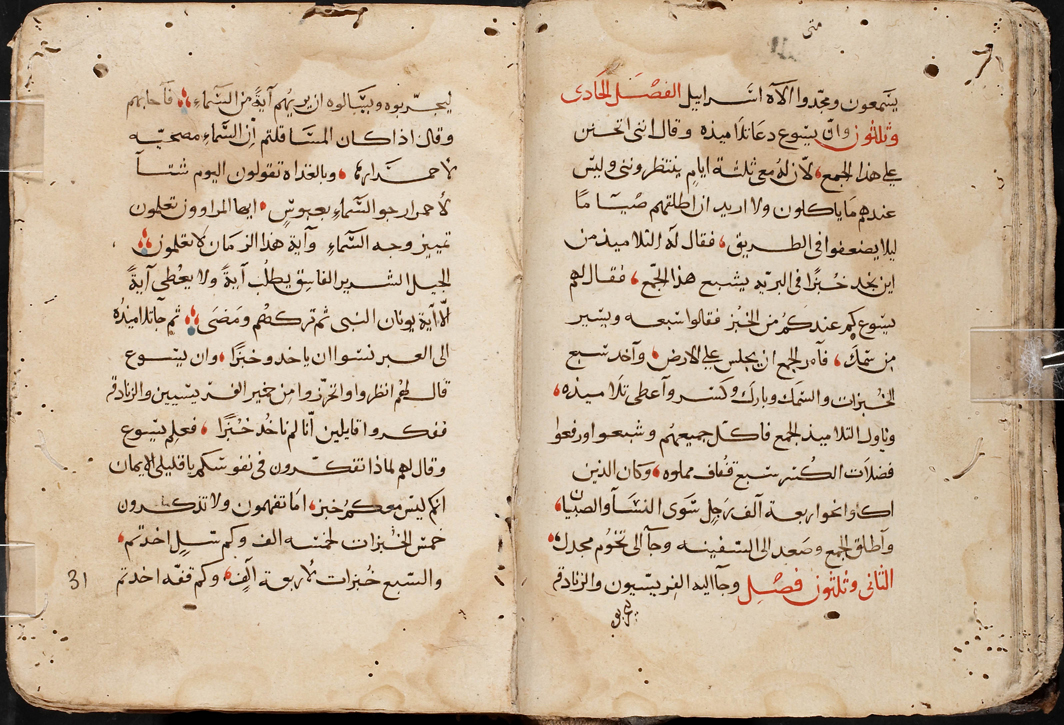 متى
يسمعون ومجدوا الاه اسرايل الفصل الحادى
وثلثون وان يسوع دعا تلاميذه وقال اننى اتحنن
على هذا الجمع لان له معى ثلثة ايام ينتظروننى وليس
عندهم ما ياكلون ولا اريد ان اطلقهم صياما
ليلا يضعفوا فى الطريق فقال له التلاميذ من
اين نجد خبزا فى البريه يشبع هذا الجمع فقال لهم
يسوع كم عندكم من الخبز فقالوا سبعه ويسير
من سمك فامر الجمع ان يجلس على الارض واخد سبع
الخبزات والسمك وبارك وكسر واعطى تلاميذه
وناول التلاميذ الجمع فاكل جميعهم وشبعوا ورفعوا
فضلات الكسر سبع قفاف مملوه وكان الذين
اكلوا نحو اربعة آلف رجل سوى النسا والصبيان
واطلق الجمع وصعد الى السفينه وجآ الى تخوم مجدل
الثانى وثلثون فصل وجا اليه الفريسيون والزنادقه
ليجربوه ويسالوه ان يريهم آية من السماء فاجابهم
وقال اذا كان المسا قلتم ان السماء مصحيه
لاحمرارها وبالغداه تقولون اليوم شتآ
لاحمرار جو السماء بعبوس ايها المراوون تعلمون
تمييز وجه السماء وآية هذا الزمان لا تعلمون
الجيل الشرير الفاسق يطلب آية ولا يعطى آية
الا آية يونان النبى ثم تركهم ومضى ثم جا تلاميذه
الى العبر نسوا ان ياخدو خبزا وان يسوع
قال لهم انظروا والحرزوا من خمير الفريسيين والزنادقه
ففكروا قايلين انا لم ناخد خبزا فعلم يسوع
وقال لهم لماذا تفكرون فى نفوسكم يا قليلى الايمان
انكم ليس معكم خبز اما تفهمون ولا تذكرون
خمس الخبزات لخمسه الف وكم سل اخدتم
والسبع خبزات لاربعة آلف وكم قفه اخدتم
31